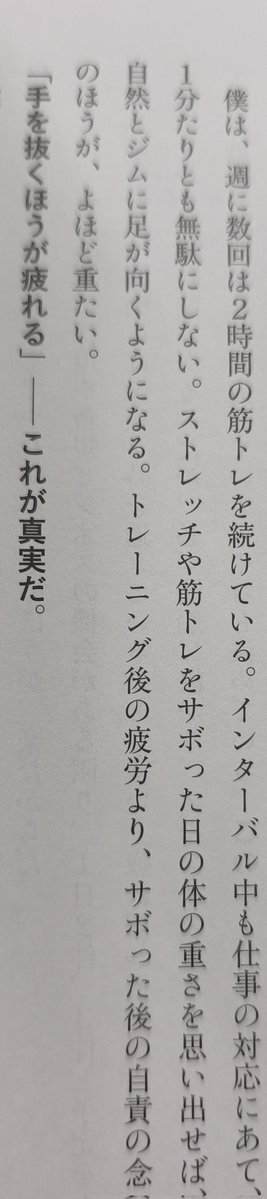 僕は、週に数回は2時間の筋トレを続けている。インターバル中も仕事の対応にあて、
1分たりとも無駄にしない。ストレッチや筋トレをサボった日の体の重さを思い出せば、
自然とジムに足が向くようになる。トレーニング後の疲労より、サボった後の自責の念
のほうが、よほど重たい。
「手を抜くほうが疲れる」——これが真実だ。